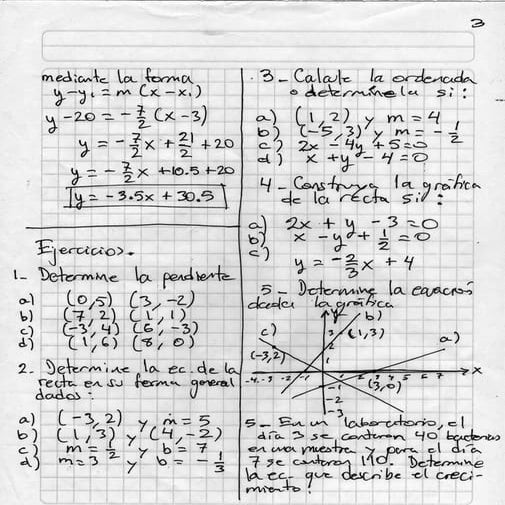 3
mediante la forma
y-y₁ = m (x-x₁)
y-20 = -7/2 (x-3)
y = -7/2 x + 21/2 + 20
y = -7/2 x +10.5+20
y = -3.5x + 30.5
Ejercicios.
1- Determine la pendiente
a) (0,5) (3,-2)
b) (7,2) (1,1)
c) (-3,4) (6,-3)
d) (1,6) (8,0)
2. Determine la ec. de la
recta en su forma general
dados:
a) (-3,2) y m=5
b) (1,3) y (4,-2)
c) m=1/2 y b=7
d) m=3 y b=-1/3
3- Calcule la ordenada
o determinela si:
a) (1,2) y m=4
b) (-5,3) y m=-1/2
c) 2x-4y+5=0
d) x+y-4=0
4- Construya la gráfica
de la recta si:
a) 2x+y-3=0
b) x-y+1/2=0
c) y=-2/3x+4
5- Determine la ecuación
dada la gráfica
y b)
c) 3 (1,3) a)
(-3,2) 2
1
-4 -3 -2 -1 1 2 3 4 5 6 7 x
-1 (3,0)
-2
-3
5- En un laboratorio, el
día 3 se contaron 40 bacterias
en una muestra y para el día
7 se contaron 110. Determine
la ec. que describe el creci-
miento!